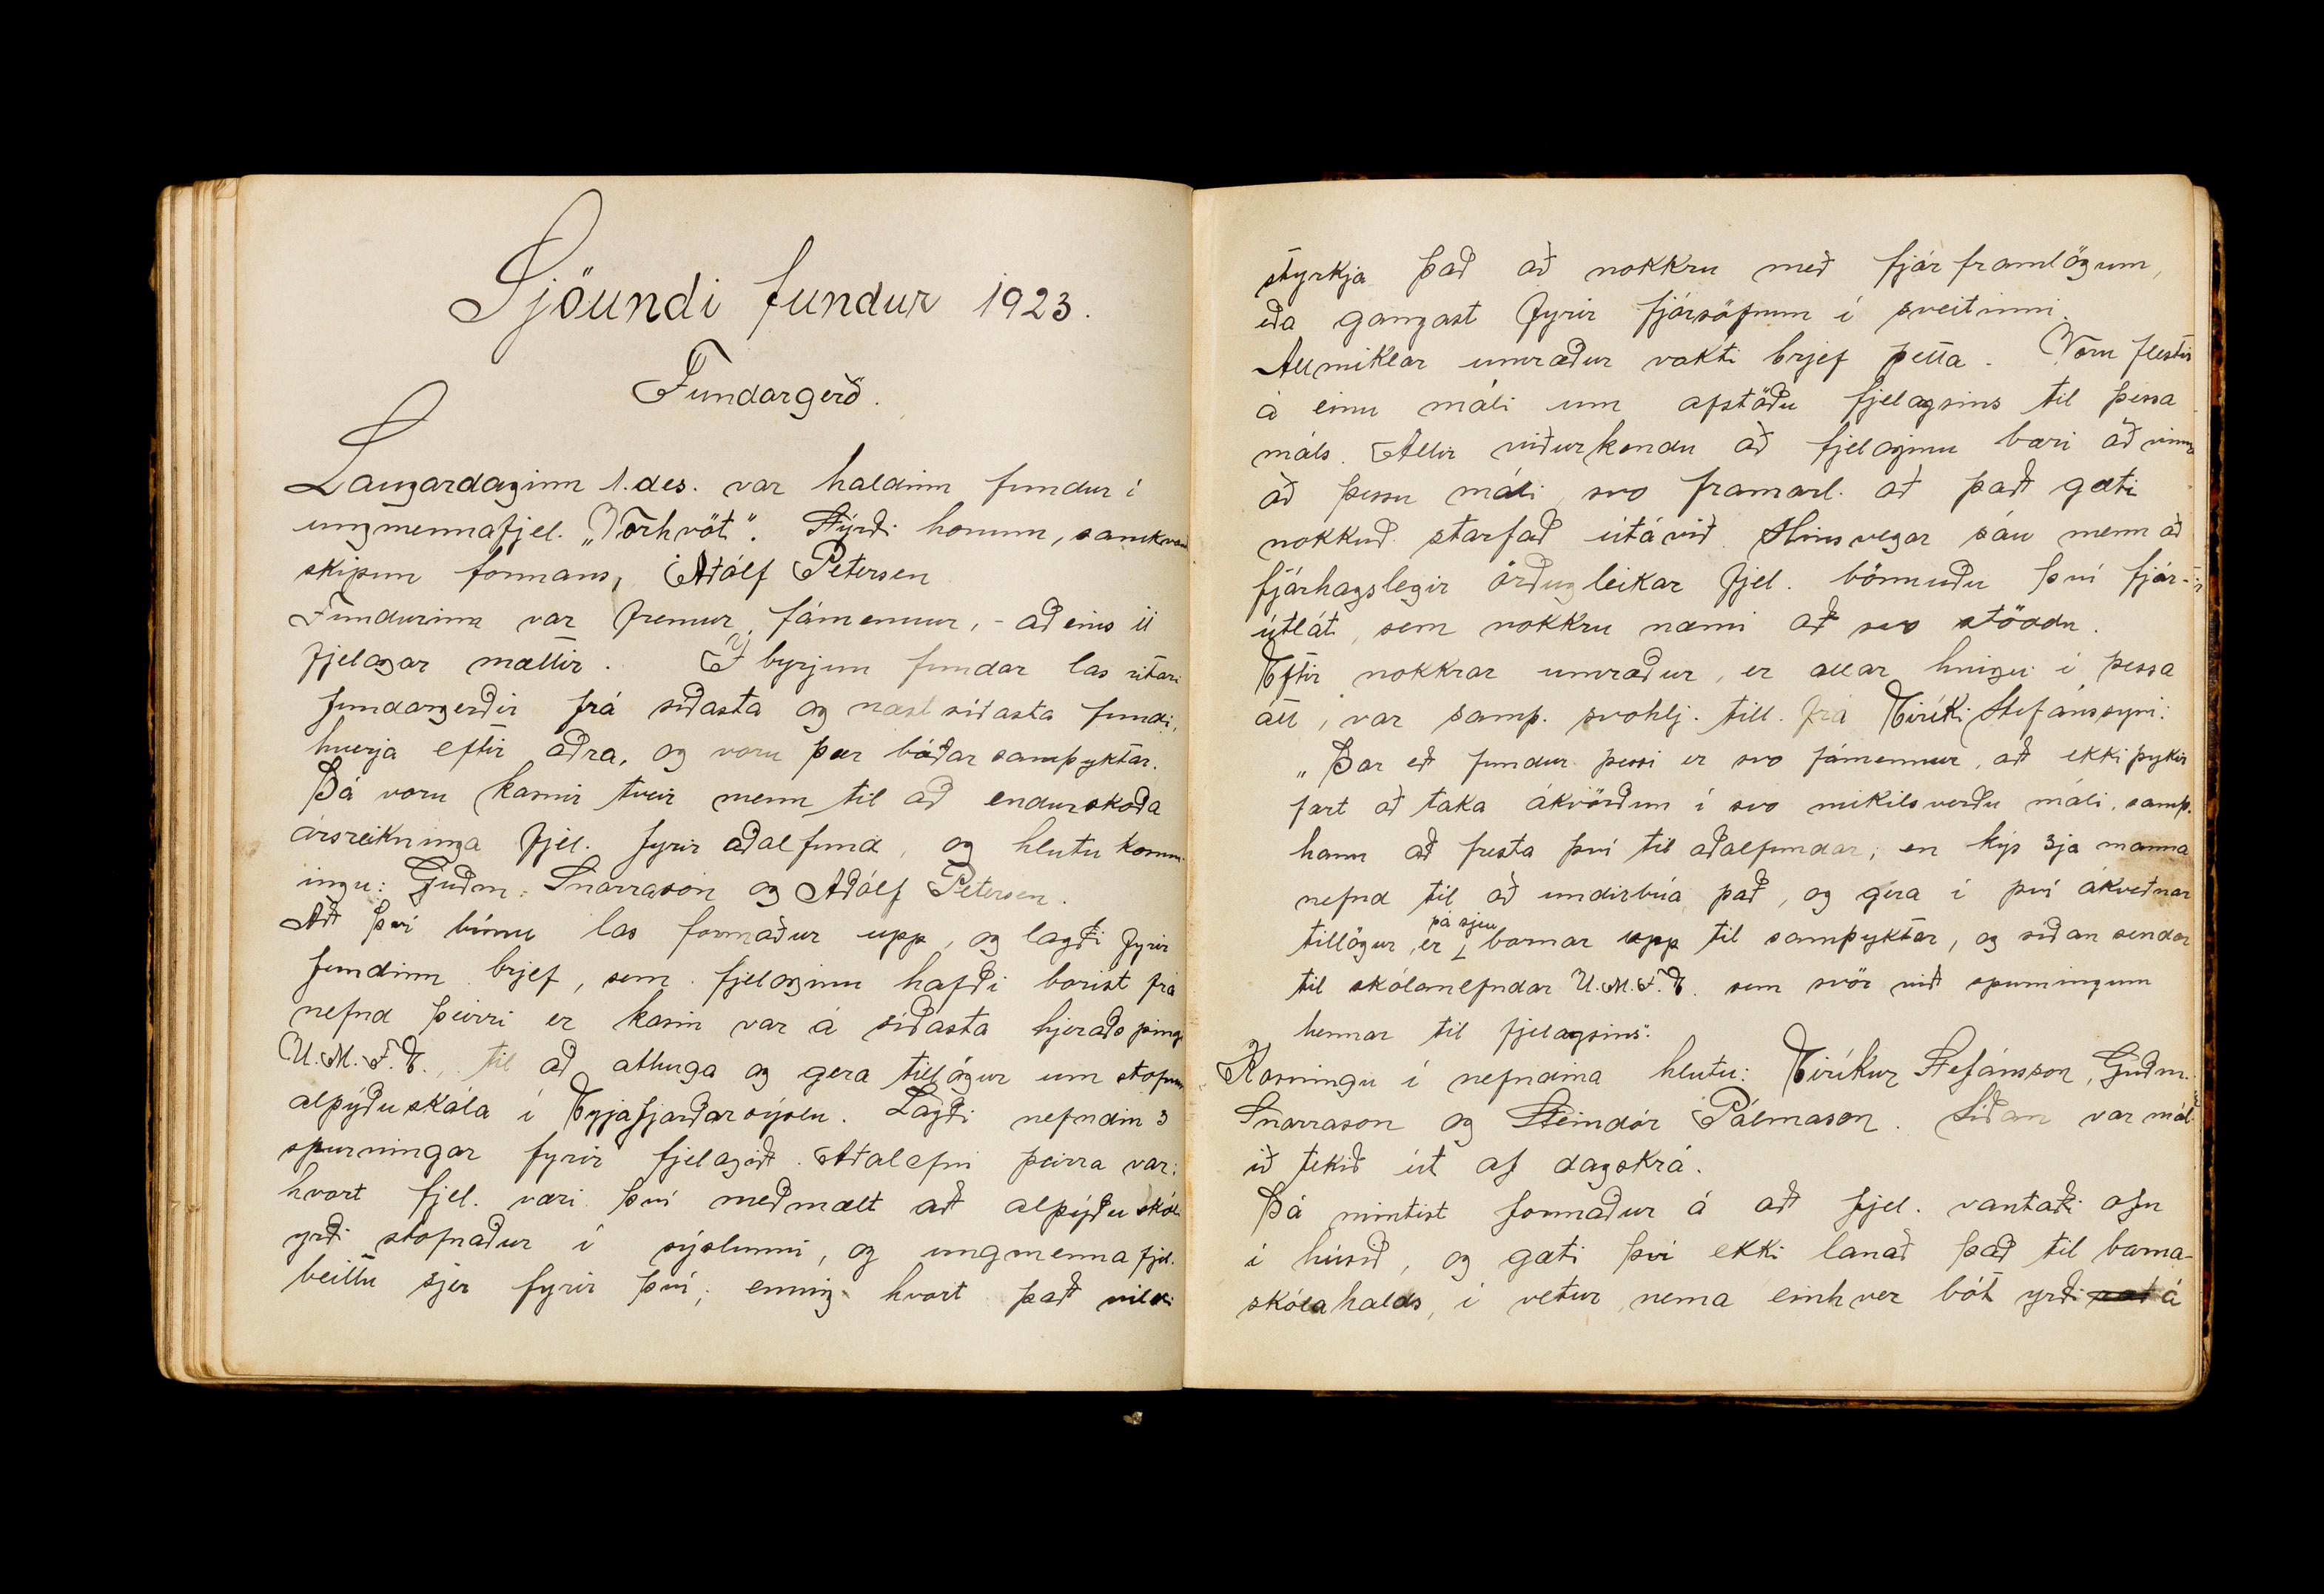 Sjöundi fundur 1923.
Fundargerð.
Laugardaginn 1. des. var haldinn fundur í
ungmennafjel. „Vorhvöt“. Stýrði honum, samkvæmt
skipun formans, Aðólf Petersen
Fundurinn var fremur fámennur, - aðeins 11
fjelagar mættir. Í byrjun fundar las ritari
fundargerðir frá síðasta og næst síðasta fundi,
hverja eftir aðra, og voru þær báðar samþyktar.
Þá voru kosnir tveir menn til að endurskoða
ársreikninga fjel. fyrir aðalfund, og hlutu kosn-
ingu: Guðm: Snorrason og Aðólf Petersen.
Að því búnu las formaður upp, og lagði fyrir
fundinn brjef, sem fjelaginu hafði borist frá
nefnd þeirri er kosin var á síðasta hjeraðsþingi
U.M.F.E., til að athuga og gera tillögur um stofnun
alþýðuskóla í Eyjafjarðarsýslu. Lagði nefndin 3
spurningar fyrir fjelagið. Aðalefni þeirra var:
hvort fjel. væri því meðmælt að alþýðuskóli
yrði stofnaður í sýslunni, og ungmennafjel.
beittu sjer fyrir því; einnig hvort það vildi
styrkja það að nokkru með fjárframlögum,
eða gangast fyrir fjársöfnun í sveitinni.
Allmiklar umræður vakti brjef þetta. Voru flestir
á einu máli um afstöðu fjelagsins til þessa
máls. Allir viðurkendu að fjelaginu bæri að vinna
að þessu máli svo framarl. að það gæti
nokkuð starfað útávið. Hinsvegar sáu menn að
fjárhagslegir örðugleikar fjel. bönnuðu því fjár-
útlát, sem nokkru næmi að svo stöddu.
Eftir nokkrar umræður, er allar hnigu í þessa
átt, var samþ. svohlj. till. frá Eiríki Stefánssyni:
„Þar eð fundur þessi er svo fámennur, að ekki þykir
fært að taka ákvörðun í svo mikilsverðu máli, samþ.
hann að fresta því til aðalfundar; en kýs 3ja manna
nefnd til að undirbúa það, og gera í því ákveðnar
tillögur, er þá sjeu bornar upp til samþyktar, og síðan sendar
til skólanefndar U.M.F.E. sem svör við spurningum
hennar til fjelagsins“.
Kosningu í nefndina hlutu: Eiríkur Stefánsson, Guðm.
Snorrason og Steindór Pálmason. Síðan var mál-
ið tekið út af dagskrá.
Þá mintist formaður á að fjel. vantaði ofn
í húsið, og gæti því ekki lánað það til barna-
skólahalds, í vetur, nema einhver bót yrði á